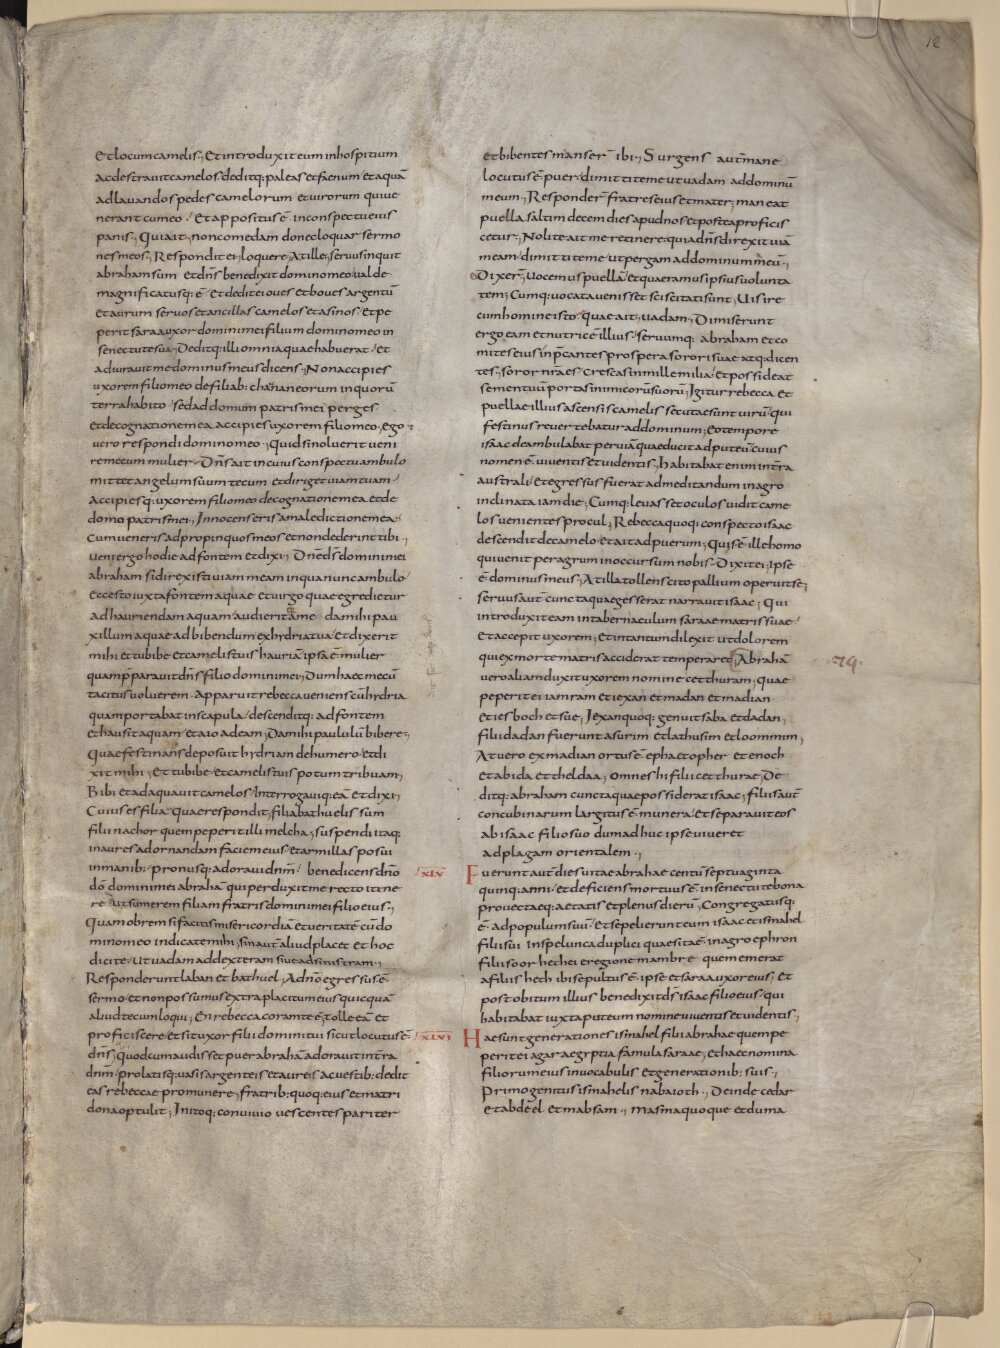 12
et locum camelis; Et introduxit eum in hospitium
ac destravit camelos deditq; paleas et faenum et aquā
ad lavandos pedes camelorum et virorum qui ve
nerant cum eo. Et appositus ē in conspectu eius
panis; Qui ait, non comedam donec loquar sermo
nes meos; Respondit ei, loquere; At ille, servus inquit
abraham sum et dn̄s benedixit domino meo valde
magnificatusq: ē Et dedit ei oves et boves argentū
et aurum servos et ancillas camelos et asinos. Et pe
perit sara uxor domini mei filium domino meo in
senectute sua; Deditq: illi omnia quae habuerat et
adiuravit me dominus meus dicens; Non accipies
uxorem filio meo de filiab: chananeorum in quorū
terra habito sed ad domum patris mei perges
et de cognatione mea accipies uxorem filio meo; Ego
vero respondi domino meo; Quid si noluerit veni
re mecum mulier. Dn̄s ait in cuius conspectu ambulo
mittet angelum suum tecum et diriget viam tuam
Accipiesq: uxorem filio meo de cognatione mea et de
domo patris mei; Innocens eris a maledictione mea
Cum veneris ad propinquos meos et non dederint tibi;
veni ergo hodie ad fontem et dixi; Dn̄e d̄s domini mei
abraham si direxisti viam meam in qua nunc ambulo
ecce sto iuxta fontem aquae et virgo quae egredietur
ad hauriendam aquam audierit a me da mihi pau
xillum aquae ad bibendum ex hydria tua Et dixerit
mihi et tu bibe et camelis tuis hauriā ipsa ē mulier
quam p̄paravit dn̄s filio domini mei; Dum haec mecū
tacitus volverem. Apparuit rebecca veniens cū hydria
quam portabat in scapula descenditq: ad fontem
et hausit aquam et aio ad eam; Da mihi paululū bibere;
Quae festinans deposuit hydriam de humero et di
xit mihi; Et tu bibe et camelis tuis potum tribuam;
Bibi et adaquavit camelos Interrogaviq: eā et dixi;
Cuius es filia Quae respondit; filia bathuelis sum
filii nachor quem peperit illi melcha; suspendi itaq:
inaures ad ornandam faciem eius et armillas posui
in manib: Pronusq: adoravi dn̄m benedicens dn̄o
dō domini mei abrahā qui perduxit me recto itine
re ut sumerem filiam fratris domini mei filio eius;
Quam obrem si facitis misericordiā et veritatē cū do
mino meo indicate mihi sin aut̄ aliud placet et hoc
dicite ut vadam ad dexteram sive ad sinistram;
Responderunt laban et bathuel; A dn̄o egressus ē
sermo et non possumus extra placitum eius quicquā
aliud tecum loqui; En rebecca coram te ē, tolle eā et
proficiscere et sit uxor filii domini tui sicut locutus ē
dn̄s; quod cum audisset puer abrahā adoravit in tra
dn̄m. prolatisq: vasis argenteis et aureis ac vestib: dedit
eas rebeccae pro munere, fratrib: quoq: eius et matri
dona optulit; Initoq: convivio vescentes pariter
et bibentes manser̄ ibi; Surgens aut̄ mane
locutus ē puer dimittite me ut vadam ad dominū
meum; Responder̄ fratres eius et mater; maneat
puella saltim decem dies apud nos et postea proficis
cetur; Nolite ait me retinere quia dn̄s direxit viā
meam dimittite me ut pergam ad dominum meū;
Dixer̄; vocemus puellā et quaeramus ipsius volunta
tem; Cumq: vocata venisset sciscitati sunt; Vis ire
cum homine isto quae ait, vadam; Dimiserunt
ergo eam et nutricē illius servumq: abraham et co
mites eius in p̄cantes prospera sorori suae atq: dicen
tes; soror nr̄a es crescas in mille milia et possideat
semen tuū portas inimicorū suorū; Igitur rebecca et
puellae illius ascensis camelis secutae sunt virū qui
festinus revertebatur ad dominum; Eo tempore
isaac deambulabat per viā quae ducit ad puteū cuius
nomen ē viventis et videntis, habitabat enim in tr̄a
australi Et egressus fuerat ad meditandum in agro
inclinata iam die; Cumq: levasset oculos vidit came
los venientes procul; Rebecca quoq: conspecto isaac
descendit de camelo et ait ad puerum; Quis ē ille homo
qui venit per agrum in occursum nobis. Dixit ei; ipse
ē dominus meus; At illa tollens cito pallium operuit se;
servus aut̄ cuncta quae gesserat narravit isaac; Qui
introduxit eam in tabernaculum sarae matris suae
Et accepit uxorem; Et in tantum dilexit ut dolorem
qui ex morte matris acciderat temperaret; Abrahā
vero aliam duxit uxorem nomine cetthuram, quae
peperit ei iamram et iexan et madan et madian
et iesboch et sue; Iexan quoq: genuit saba et dadan,
filii dadan fuerunt asurim et lathusim et loommim;
At vero ex madian ortus ē epha et opher et enoch
et abida et theldaa; omnes hi filii cetthurae; De
ditq: abraham cuncta quae possiderat isaac; filiis aut̄
concubinarum largitus ē munera et separavit eos
ab isaac filio suo dum adhuc ipse viveret
ad plagam orientalem;
XLV Fuerunt aut̄ dies vitae abrahae centū septuaginta
quinq: anni et deficiens mortuus ē in senectute bona
provectaeq: aetatis et plenus dierū; Congregatusq:
ē ad populum suū Et sepelierunt eum isaac et ismahel
filii sui in spelunca duplici quae sita ē in agro ephron
filii soor hethei e regione mambre quem emerat
a filiis heth ibi sepultus ē ipse et sara uxor eius; Et
post obitum illius benedixit d̄s isaac filio eius qui
habitabat iuxta puteum nomine viventis et videntis;
XLVI Hae sunt generationes ismahel filii abrahae quem pe
perit ei agar aegyptia famula sarae; et haec nomina
filiorum eius in vocabulis et generationib: suis;
Primogenitus ismahelis nabaioth; Deinde cedar
et abdeel et mabsam; masma quoque et duma